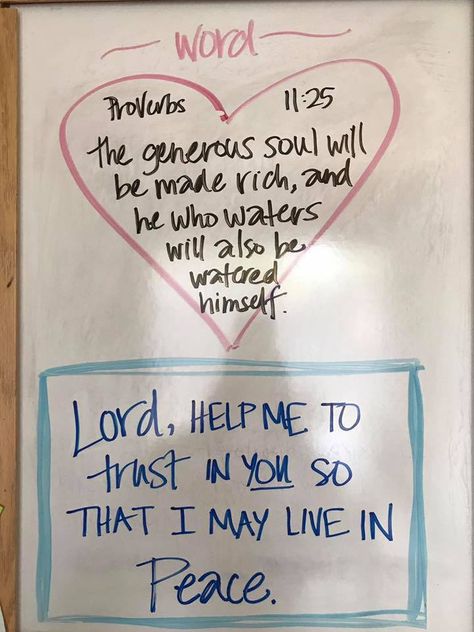 word
Proverbs 11:25
the generous soul will
be made rich, and
he who waters
will also be
watered
himself.
Lord, HELP ME TO
trust IN YOU SO
THAT I MAY LIVE IN
Peace.